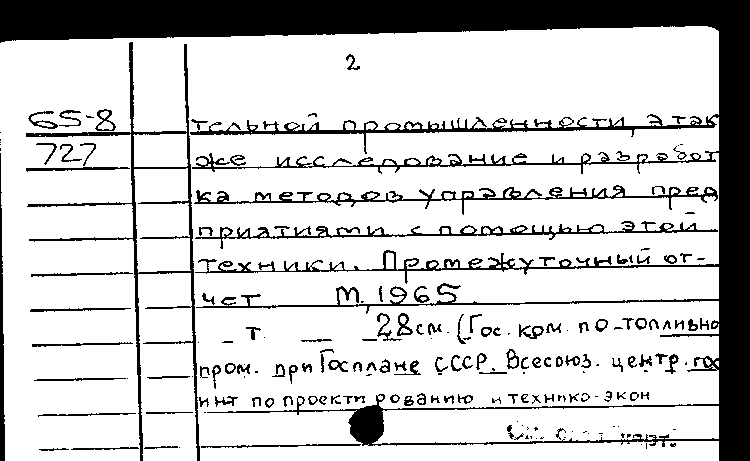 2
65-8 тельной промышленности, а так
727 же исследование и разработ
ка методов управления пред
приятиями с помощью этой
техники. Промежуточный от-
чет М, 1965.
_ т __ _28см. (Гос. ком. по-топливно
пром. при Госплане СССР. Всесоюз. центр. гос
инт по проекти рованию и технико-экон
карт.